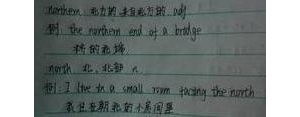 northern 北方的 来自北方的 adj
例: the northern end of a bridge
桥的北端
north 北,北部 n.
例: I live in a small room facing the north
我住在朝北的小房间里